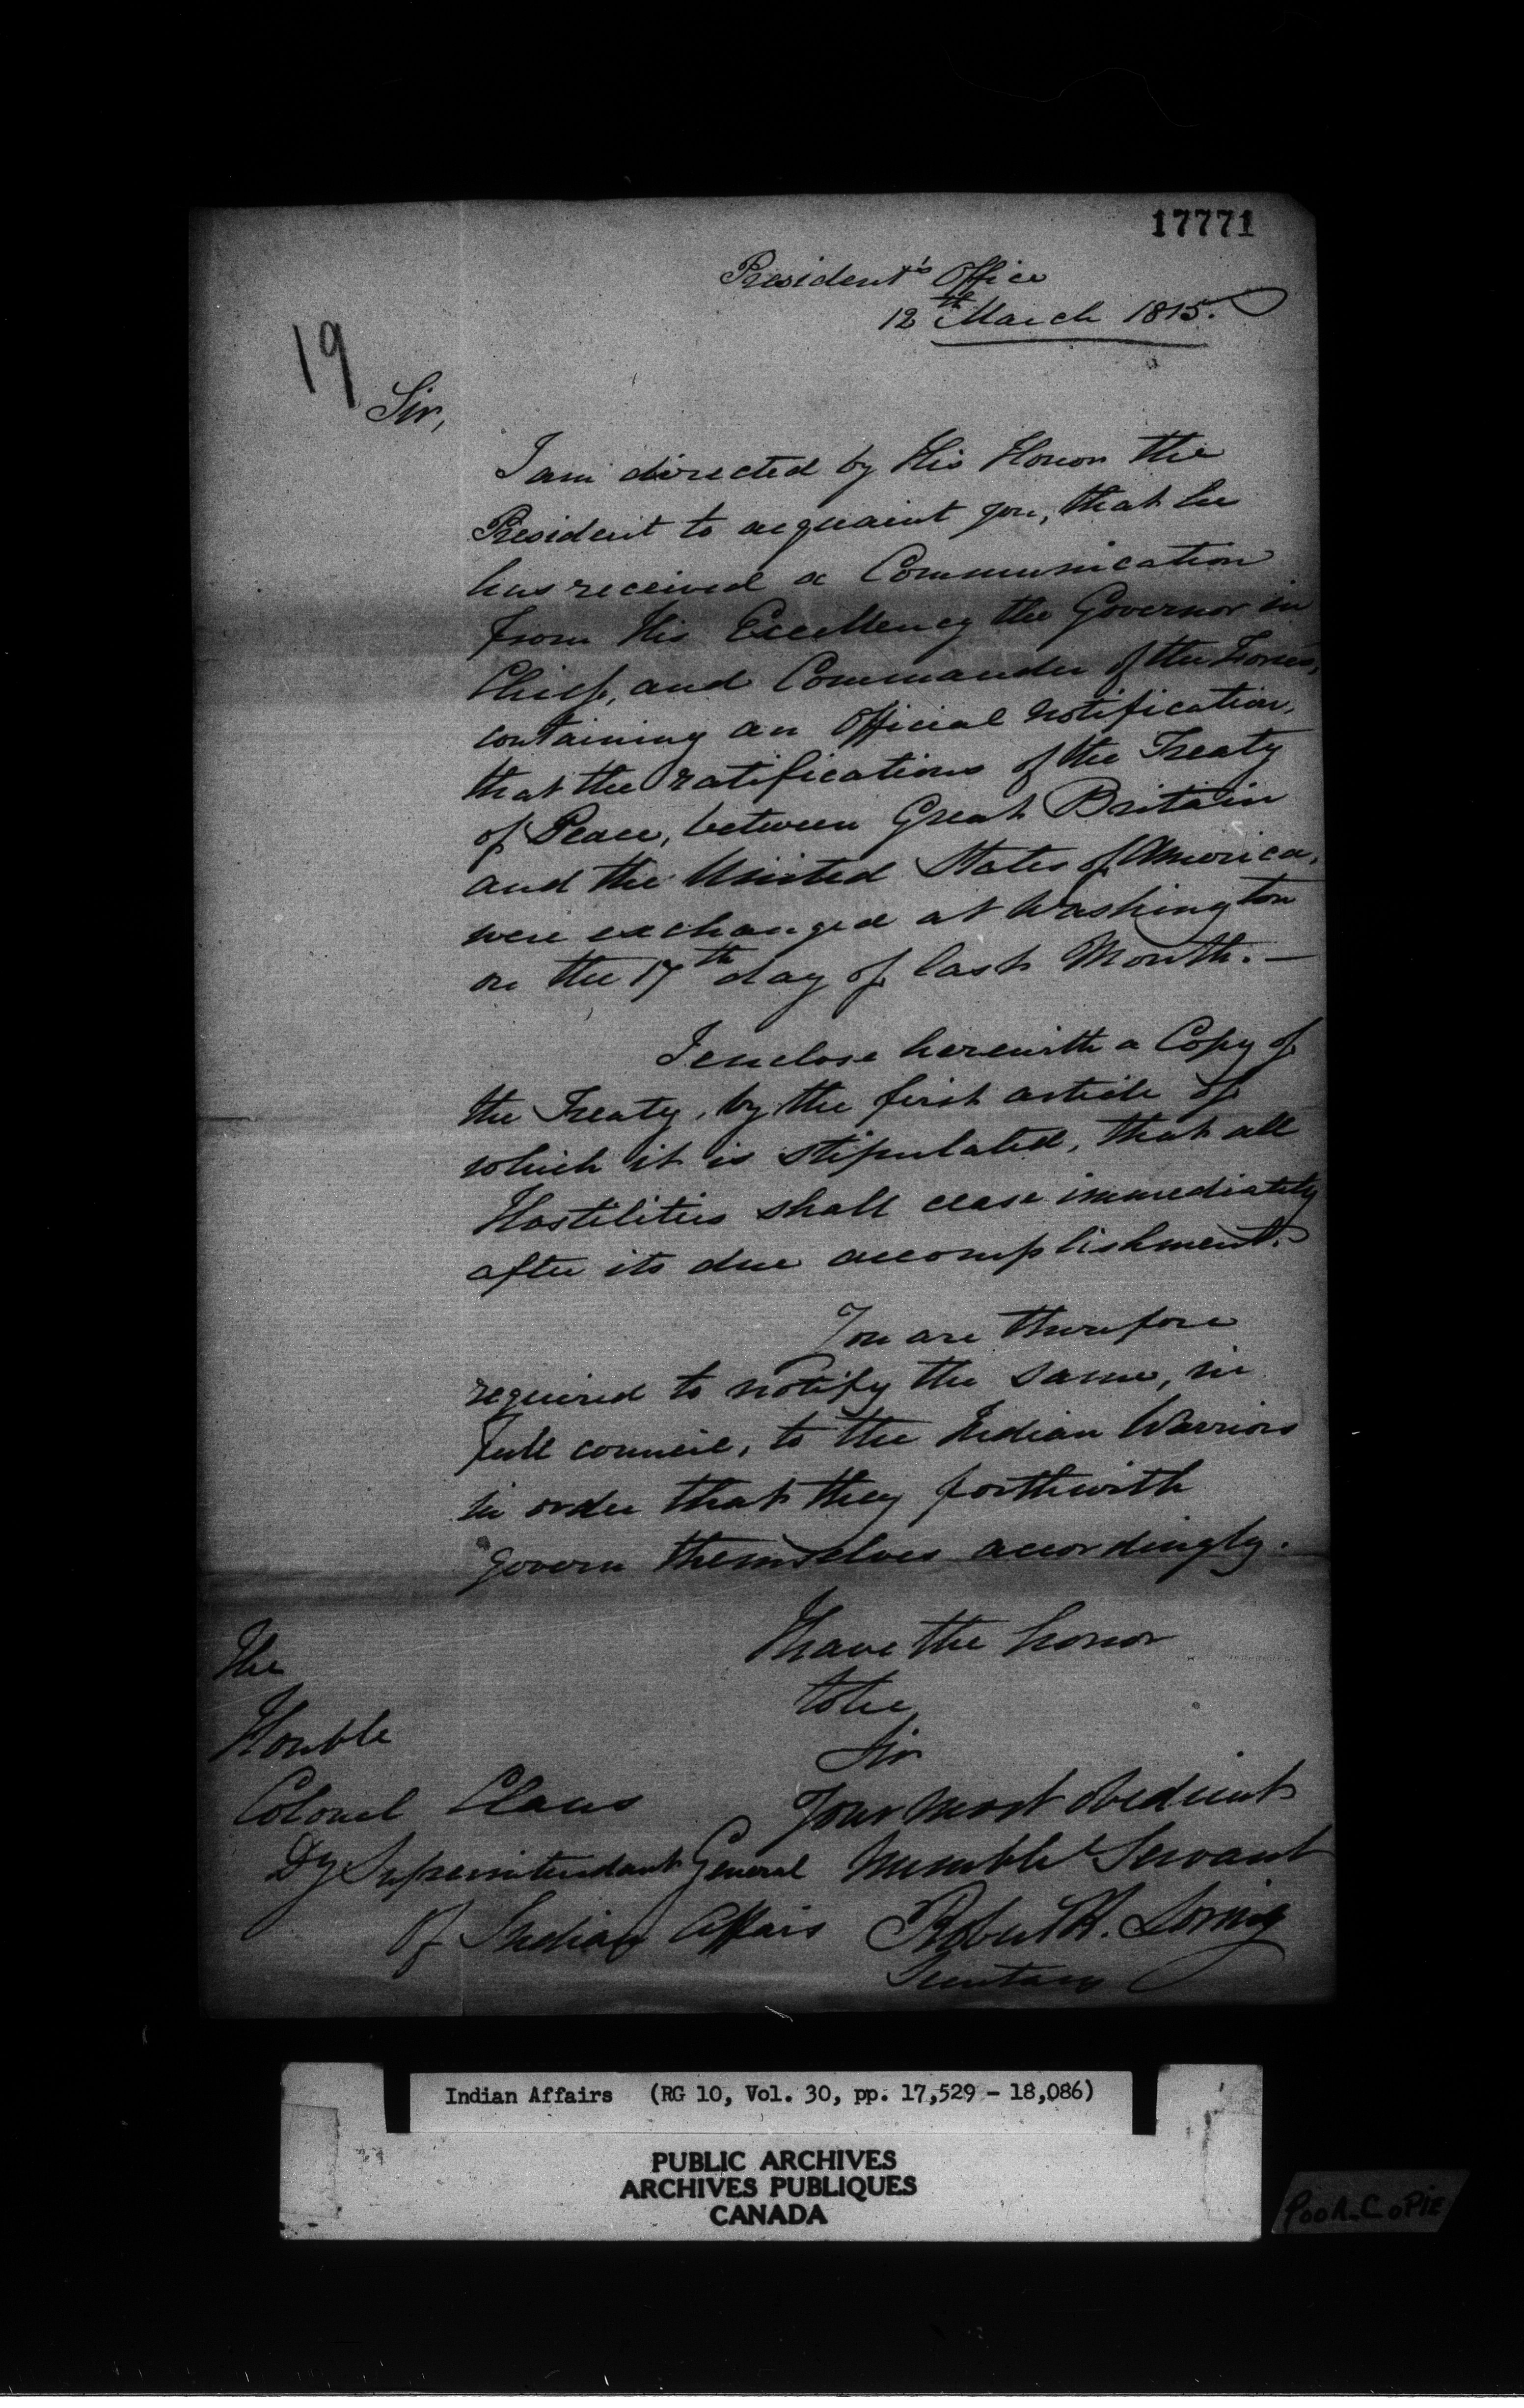 17771
President's Office
12th March 1815.
19
Sir,
I am directed by His Honor the
President to acquaint you, that he
has received a Communication
from His Excellency the Governor in
Chief, and Commander of the Forces,
containing an Official Notification,
that the ratifications of the Treaty
of Peace, between Great Britain
and the United States of America,
were exchanged at Washington
on the 17th day of last Month. —
I enclose herewith a Copy of
the Treaty, by the first article of
which it is stipulated, that all
Hostilities shall cease immediately
after its due accomplishment.
You are therefore
required to notify the same, in
full council, to the Indian Warriors
in order that they forthwith
govern themselves accordingly.
I have the honor
to be
Sir
Your most obedient
Humble Servant
Robert R. Loring
Secretary
The
Honble
Colonel Claus
Dy Superintendant General
Of Indian Affairs
Indian Affairs (RG 10, Vol. 30, pp. 17,529 - 18,086)
PUBLIC ARCHIVES
ARCHIVES PUBLIQUES
CANADA
POOR COPIE